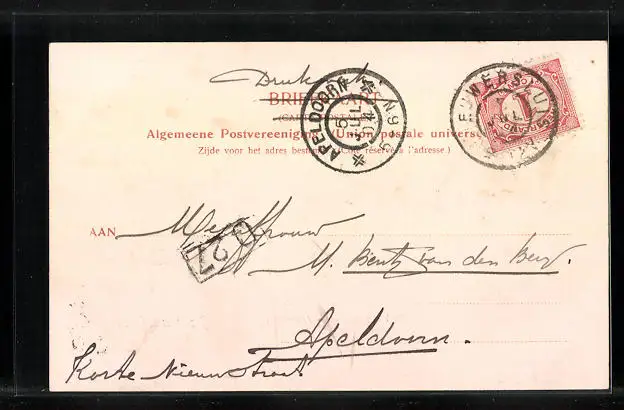 Drukwerk
BRIEFKAART
(CARTE POSTALE)
Algemeene Postvereeniging (Union postale universelle)
Zijde voor het adres bestemd. (Côté réservé à l'adresse.)
APELDOORN
5 JUL
1
AAN Mejuffrouw
M. Bentz van den Berg.
Apeldoorn.
Korte Nieuwstraat